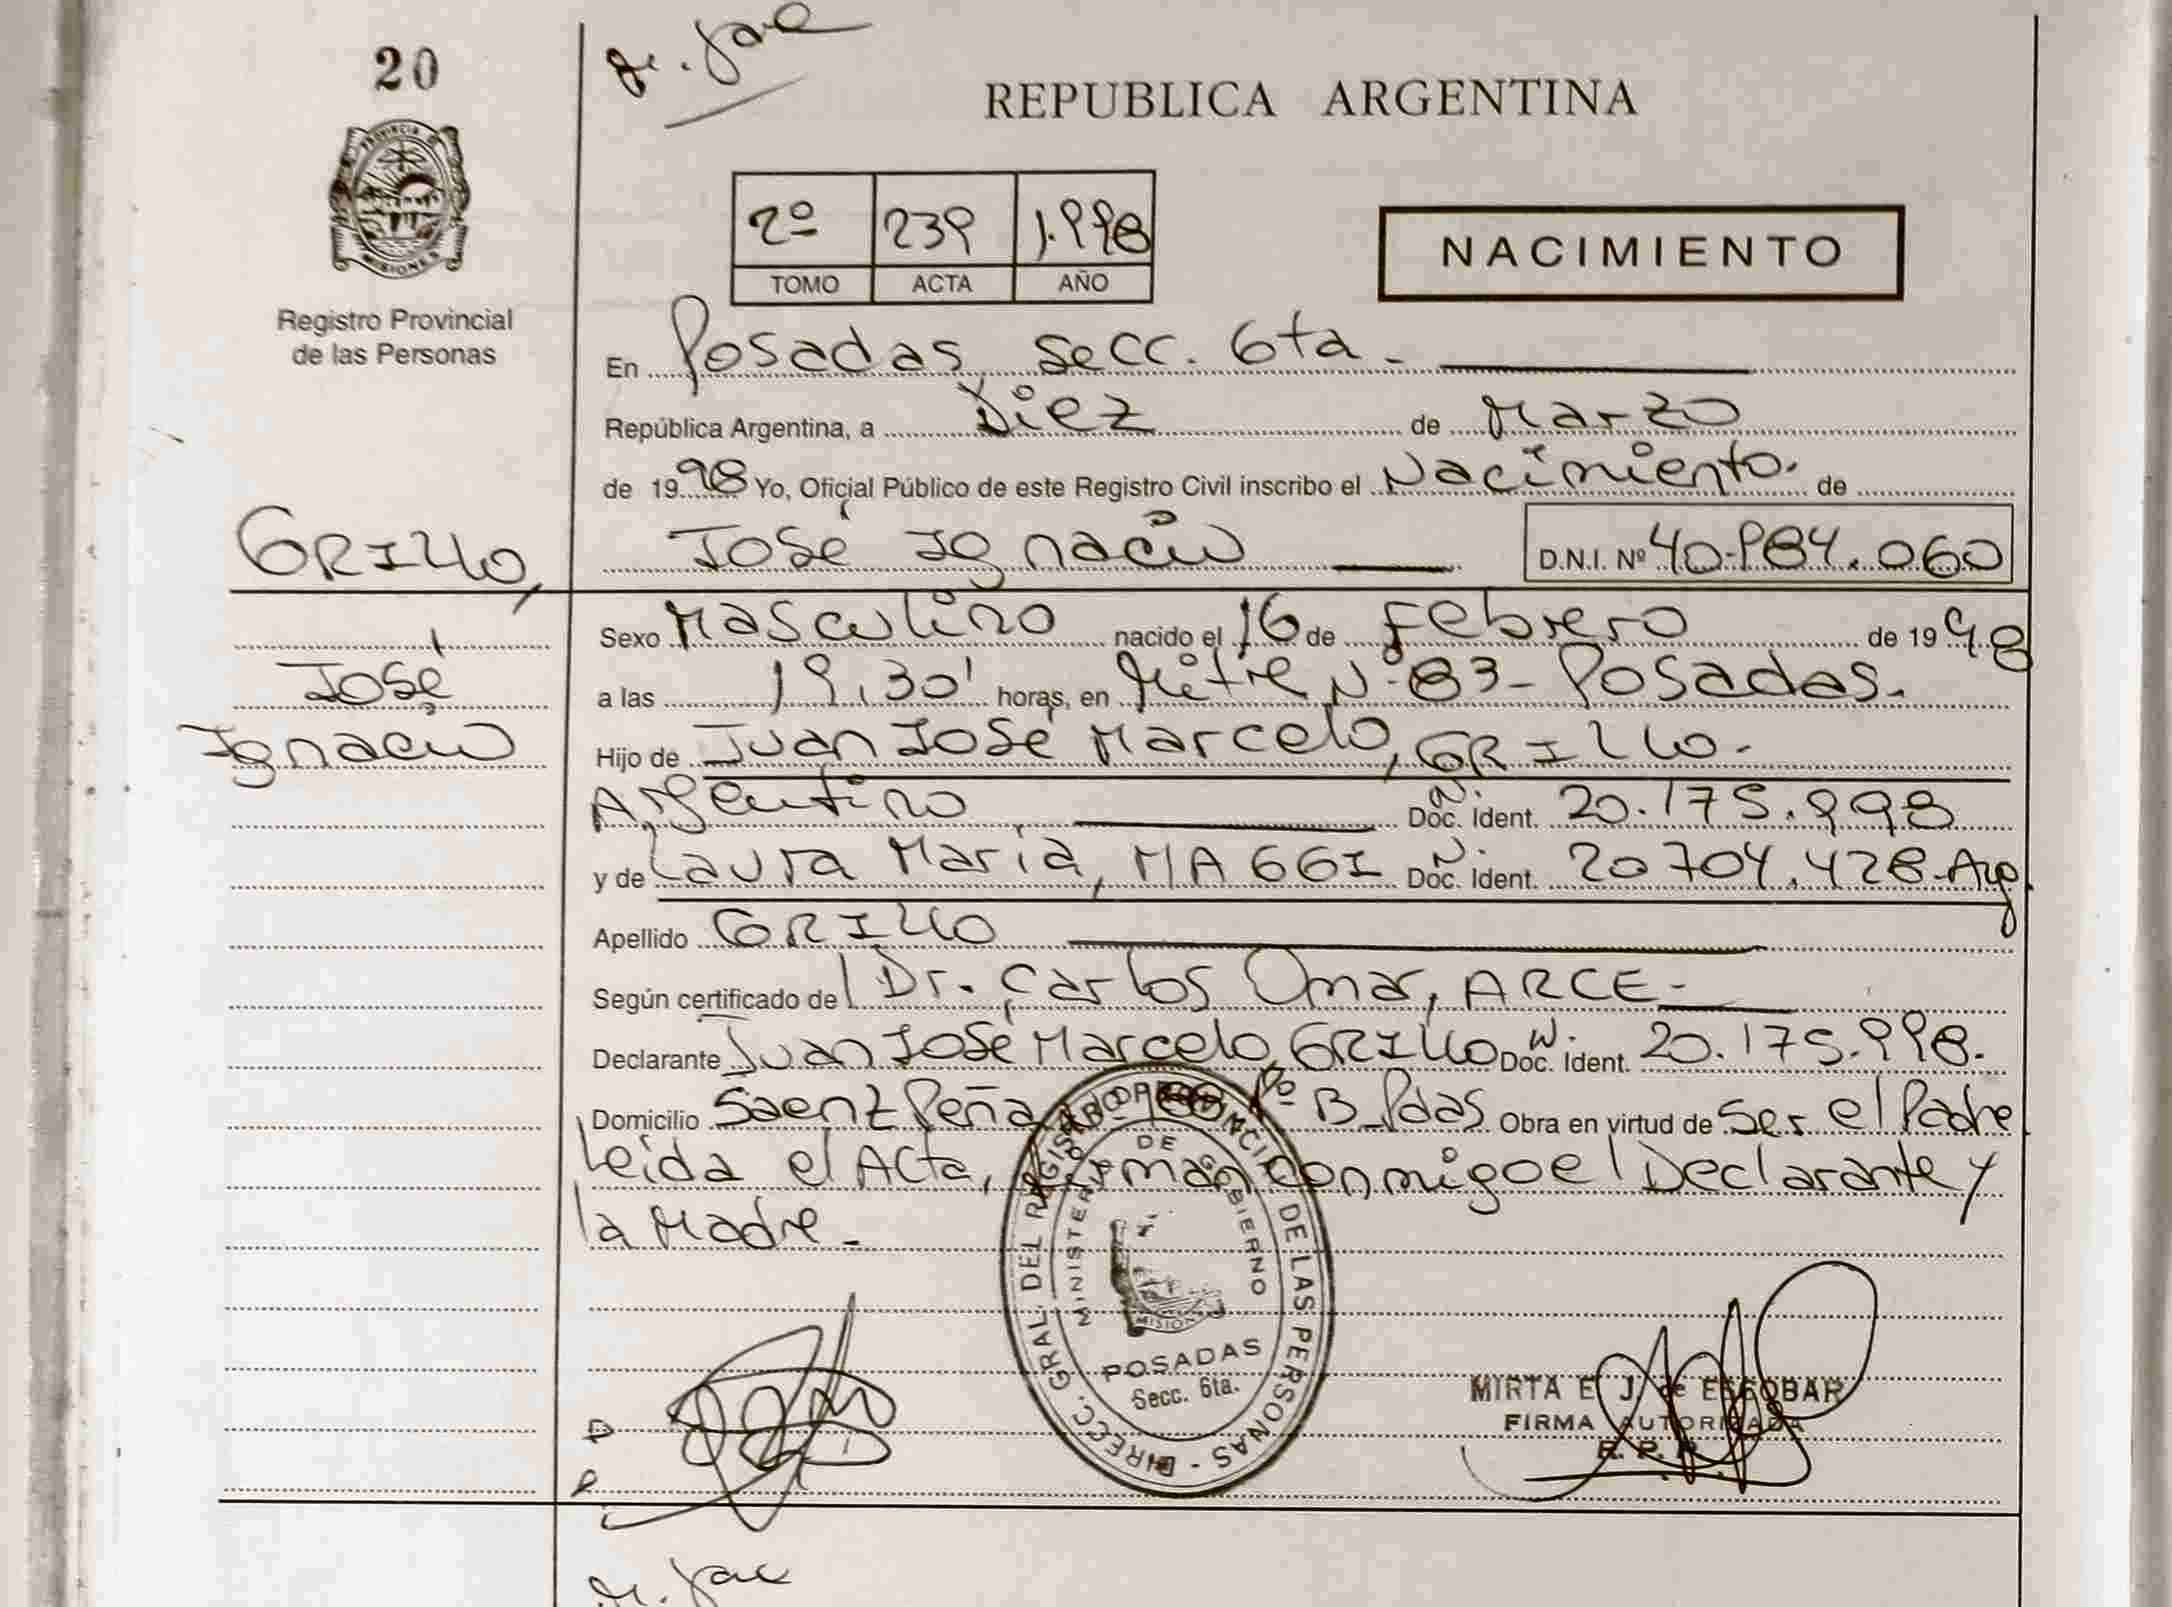 20
REPUBLICA ARGENTINA
PROVINCIA DE
MISIONES
Registro Provincial
de las Personas
2º 239 1.998
TOMO ACTA AÑO
NACIMIENTO
En Posadas secc. 6ta.
República Argentina, a Diez de Marzo
de 1998 Yo, Oficial Público de este Registro Civil inscribo el Nacimiento. de
GRILLO,
José Ignacio D.N.I. Nº 40.984.060
José
Ignacio
Sexo Masculino nacido el 16 de Febrero de 1998
a las 19,30' horas, en Mitre Nº 83- Posadas.
Hijo de Juan José Marcelo, GRILLO.
Argentino N. Doc. Ident. 20.175.998
y de Laura María, MAGGI N. Doc. Ident. 20704.428-Arg.
Apellido GRILLO
Según certificado de Dr. Carlos Omar, ARCE-
Declarante Juan José Marcelo, GRILLO N. Doc. Ident. 20.175.998.
Domicilio Saenz Peña Pº B-Pdas Obra en virtud de Ser el Padre
Leída el Acta, Firman conmigo el Declarante y
la Madre.-
DIRECC. GRAL. DEL REGISTRO PROVINCIAL DE LAS PERSONAS -
MINISTERIO DE GOBIERNO
MISIONES
POSADAS
Secc. 6ta.
MIRTA E J de ESCOBAR
FIRMA AUTORIZADA
R. P. P.